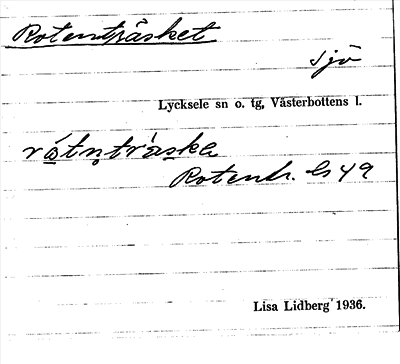 Rotenträsket
sjö
Lycksele sn o. tg, Västerbottens l.
rátn̥trȧska
Rotentr. Gs 49
Lisa Lidberg 1936.